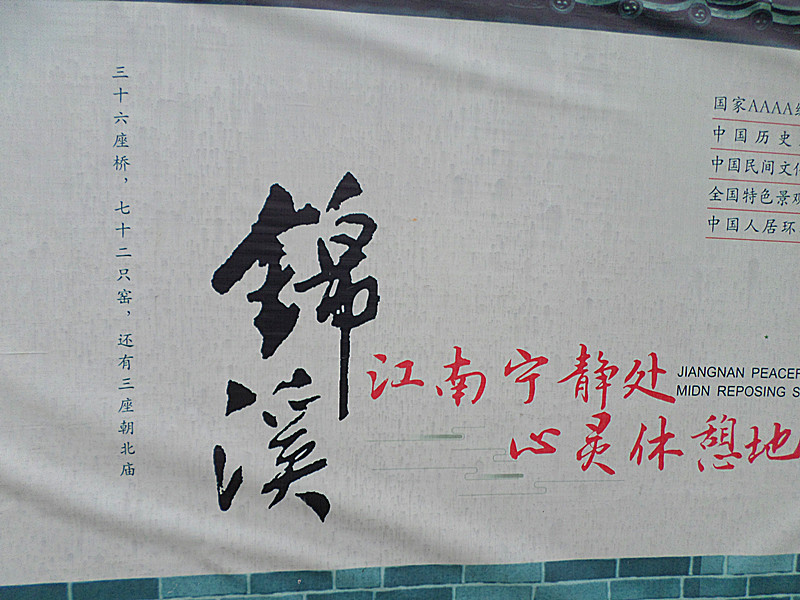 三十六座桥，七十二只窑，还有三座朝北庙
錦溪
国家AAAA
中国历史
中国民间文
全国特色景观
中国人居环
江南宁静处
心灵休憩地
JIANGNAN PEACEF
MIDN REPOSING S